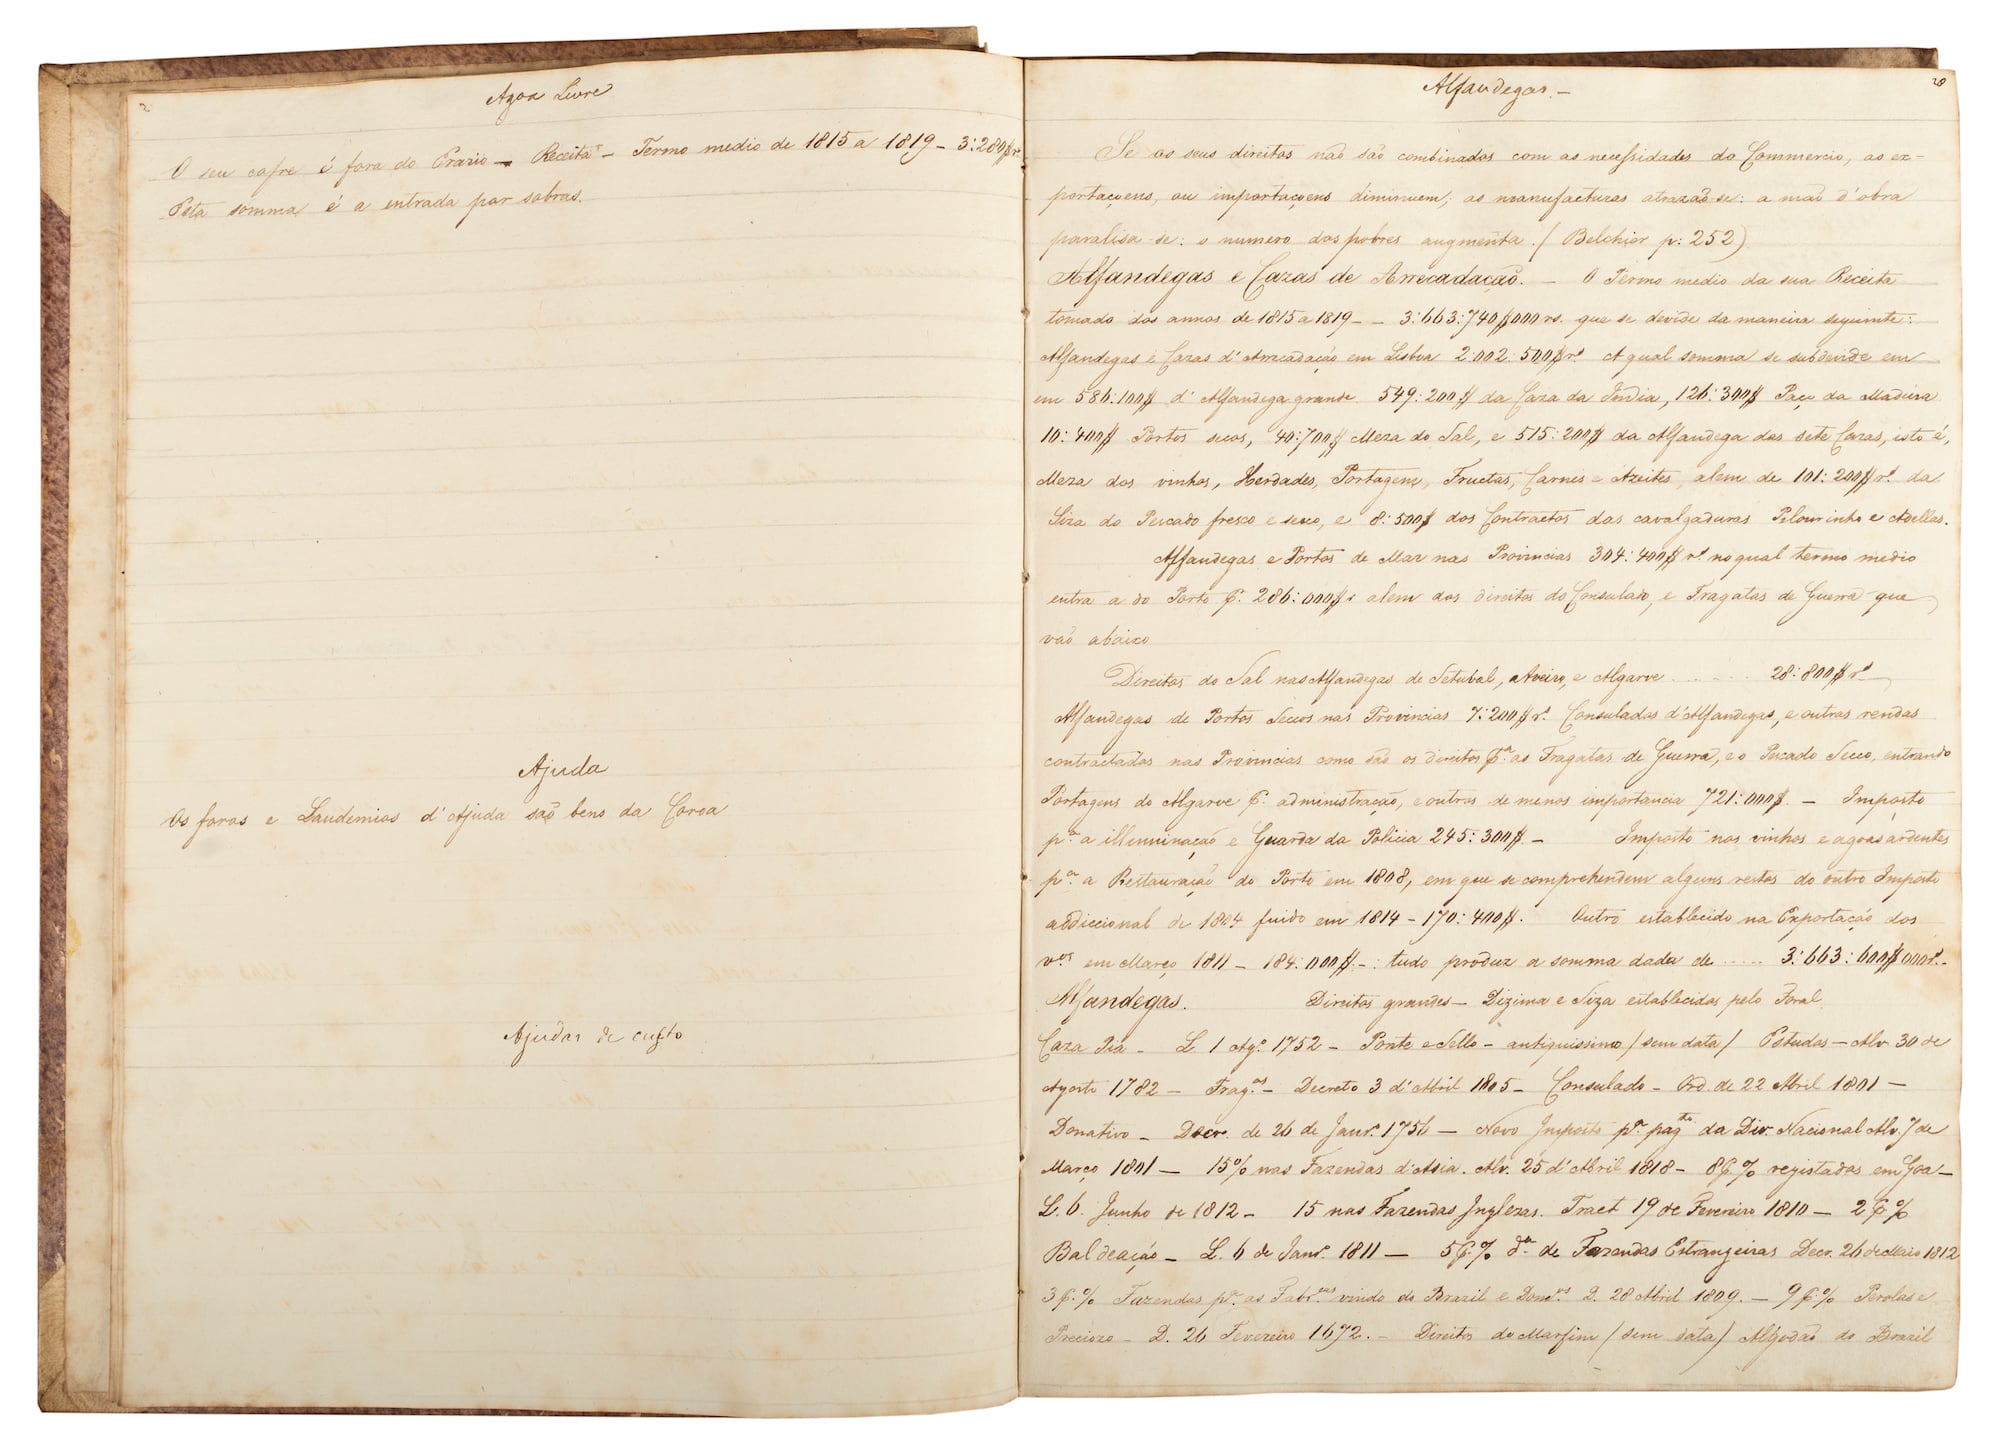 Agoa Livre
O seu cofre é fora do Erario — Receita — Termo medio de 1815 a 1819 — 3:280$r.
Esta somma é a entrada por sobras.
Ajuda
Os foros e Laudemios d'Ajuda saõ bens da Coroa
Ajudas de custo
Alfandegas. —
Se os seus direitos naõ saõ combinados com as necessidades do Commercio, as ex=
portaçoens, ou importaçoens diminuem; as manufacturas atrazaõ-se: a maõ d'obra
paralisa-se: o numero dos pobres augmenta. / Belchior p: 252)
Alfandegas e Cazas de Arrecadaçaõ. — O Termo medio da sua Receita
tomado dos annos de 1815 a 1819 — — 3:663:740$000 rs. que se devide da maneira seguinte:
Alfandegas e Cazas d'Arrecadaçaõ em Lisboa 2:002:500$rs. A qual somma se subdevide em
em 586:100$ d'Alfandega grande 549:200$ da Caza da India, 126:300$ Paço da Madeira
10:400$ Portos secos, 40:700$ Meza do Sal, e 515:200$ da Alfandega das sete Cazas, isto é,
Meza dos vinhos, Herdades, Portagem, Fructas, Carnes e Azeites, alem de 101:200$rs. da
Siza do Pescado fresco e seco, e 8:500$ dos Contractos das cavalgaduras Pelourinho e Adellas.
Alfandegas e Portos de Mar nas Provincias 304:400$rs. no qual termo medio
entra a do Porto p.r 286:000$r alem dos direitos do Consulado, e Fragatas de Guerra que
vaõ abaixo
Direitos do Sal nas Alfandegas de Setubal, Aveiro, e Algarve . . . . . . 28:800$rs.
Alfandegas de Portos Seccos nas Provincias 7:200$rs. Consulados d'Alfandegas, e outras rendas
contractadas nas Provincias como saõ os direitos p.a as Fragatas de Guerra, e o Pescado Secco, entrando
Portagens do Algarve p.r administraçaõ, e outras de menos importancia 721:000$. — Imposto
p.a a illuminaçaõ e Guarda da Policia 245:300$. — Imposto nos vinhos e agoas ardentes
p.a a Restauraçaõ do Porto em 1808, em que se comprehendem alguns restos do outro Imposto
addiccional de 1804 findo em 1814 - 170:400$. Outro establecido na Exportaçaõ dos
v.os em Março 1811 — 184:000$ — : tudo produz a somma dada de ..... 3:663:600$000 r.s
Alfandegas. Direitos grandes — Dizima e Siza establecidos pelo Foral
Caza Pia — L. 1 Ag.o 1752 — Ponte e Sello — antiquissimo / sem data / Estudos — Alv. 30 de
Agosto 1782 — Frag.as — Decreto 3 d'Abril 1805 — Consulado — Ord. de 22 Abril 1801 —
Donativo — Decr. de 26 de Janr.o 1756 — Novo Imposto p.a pag.to da Div. Nacional Alv. 7 de
Março 1801 — 15% nas Fazendas d'Asia. Alv. 25 d'Abril 1818 — 8 p.% registadas em Goa —
L. 6. Junho de 1812 — 15 nas Fazendas Inglezas. Tract. 19 de Fevereiro 1810 — 2 p%
Baldeaçaõ — L. 6 de Janr.o 1811 — 5 p.% d.a de Fazendas Estrangeiras Decr. 26 de Maio 1812
3 p.% Fazendas p.a as Fabr.cas vindo do Brazil e Dom.os D. 28 Abril 1809. — 9 p% Perolas e
Preciozo — D. 26 Fevereiro 1672. — Direitos do Marfim / sem data / Algodaõ do Brazil